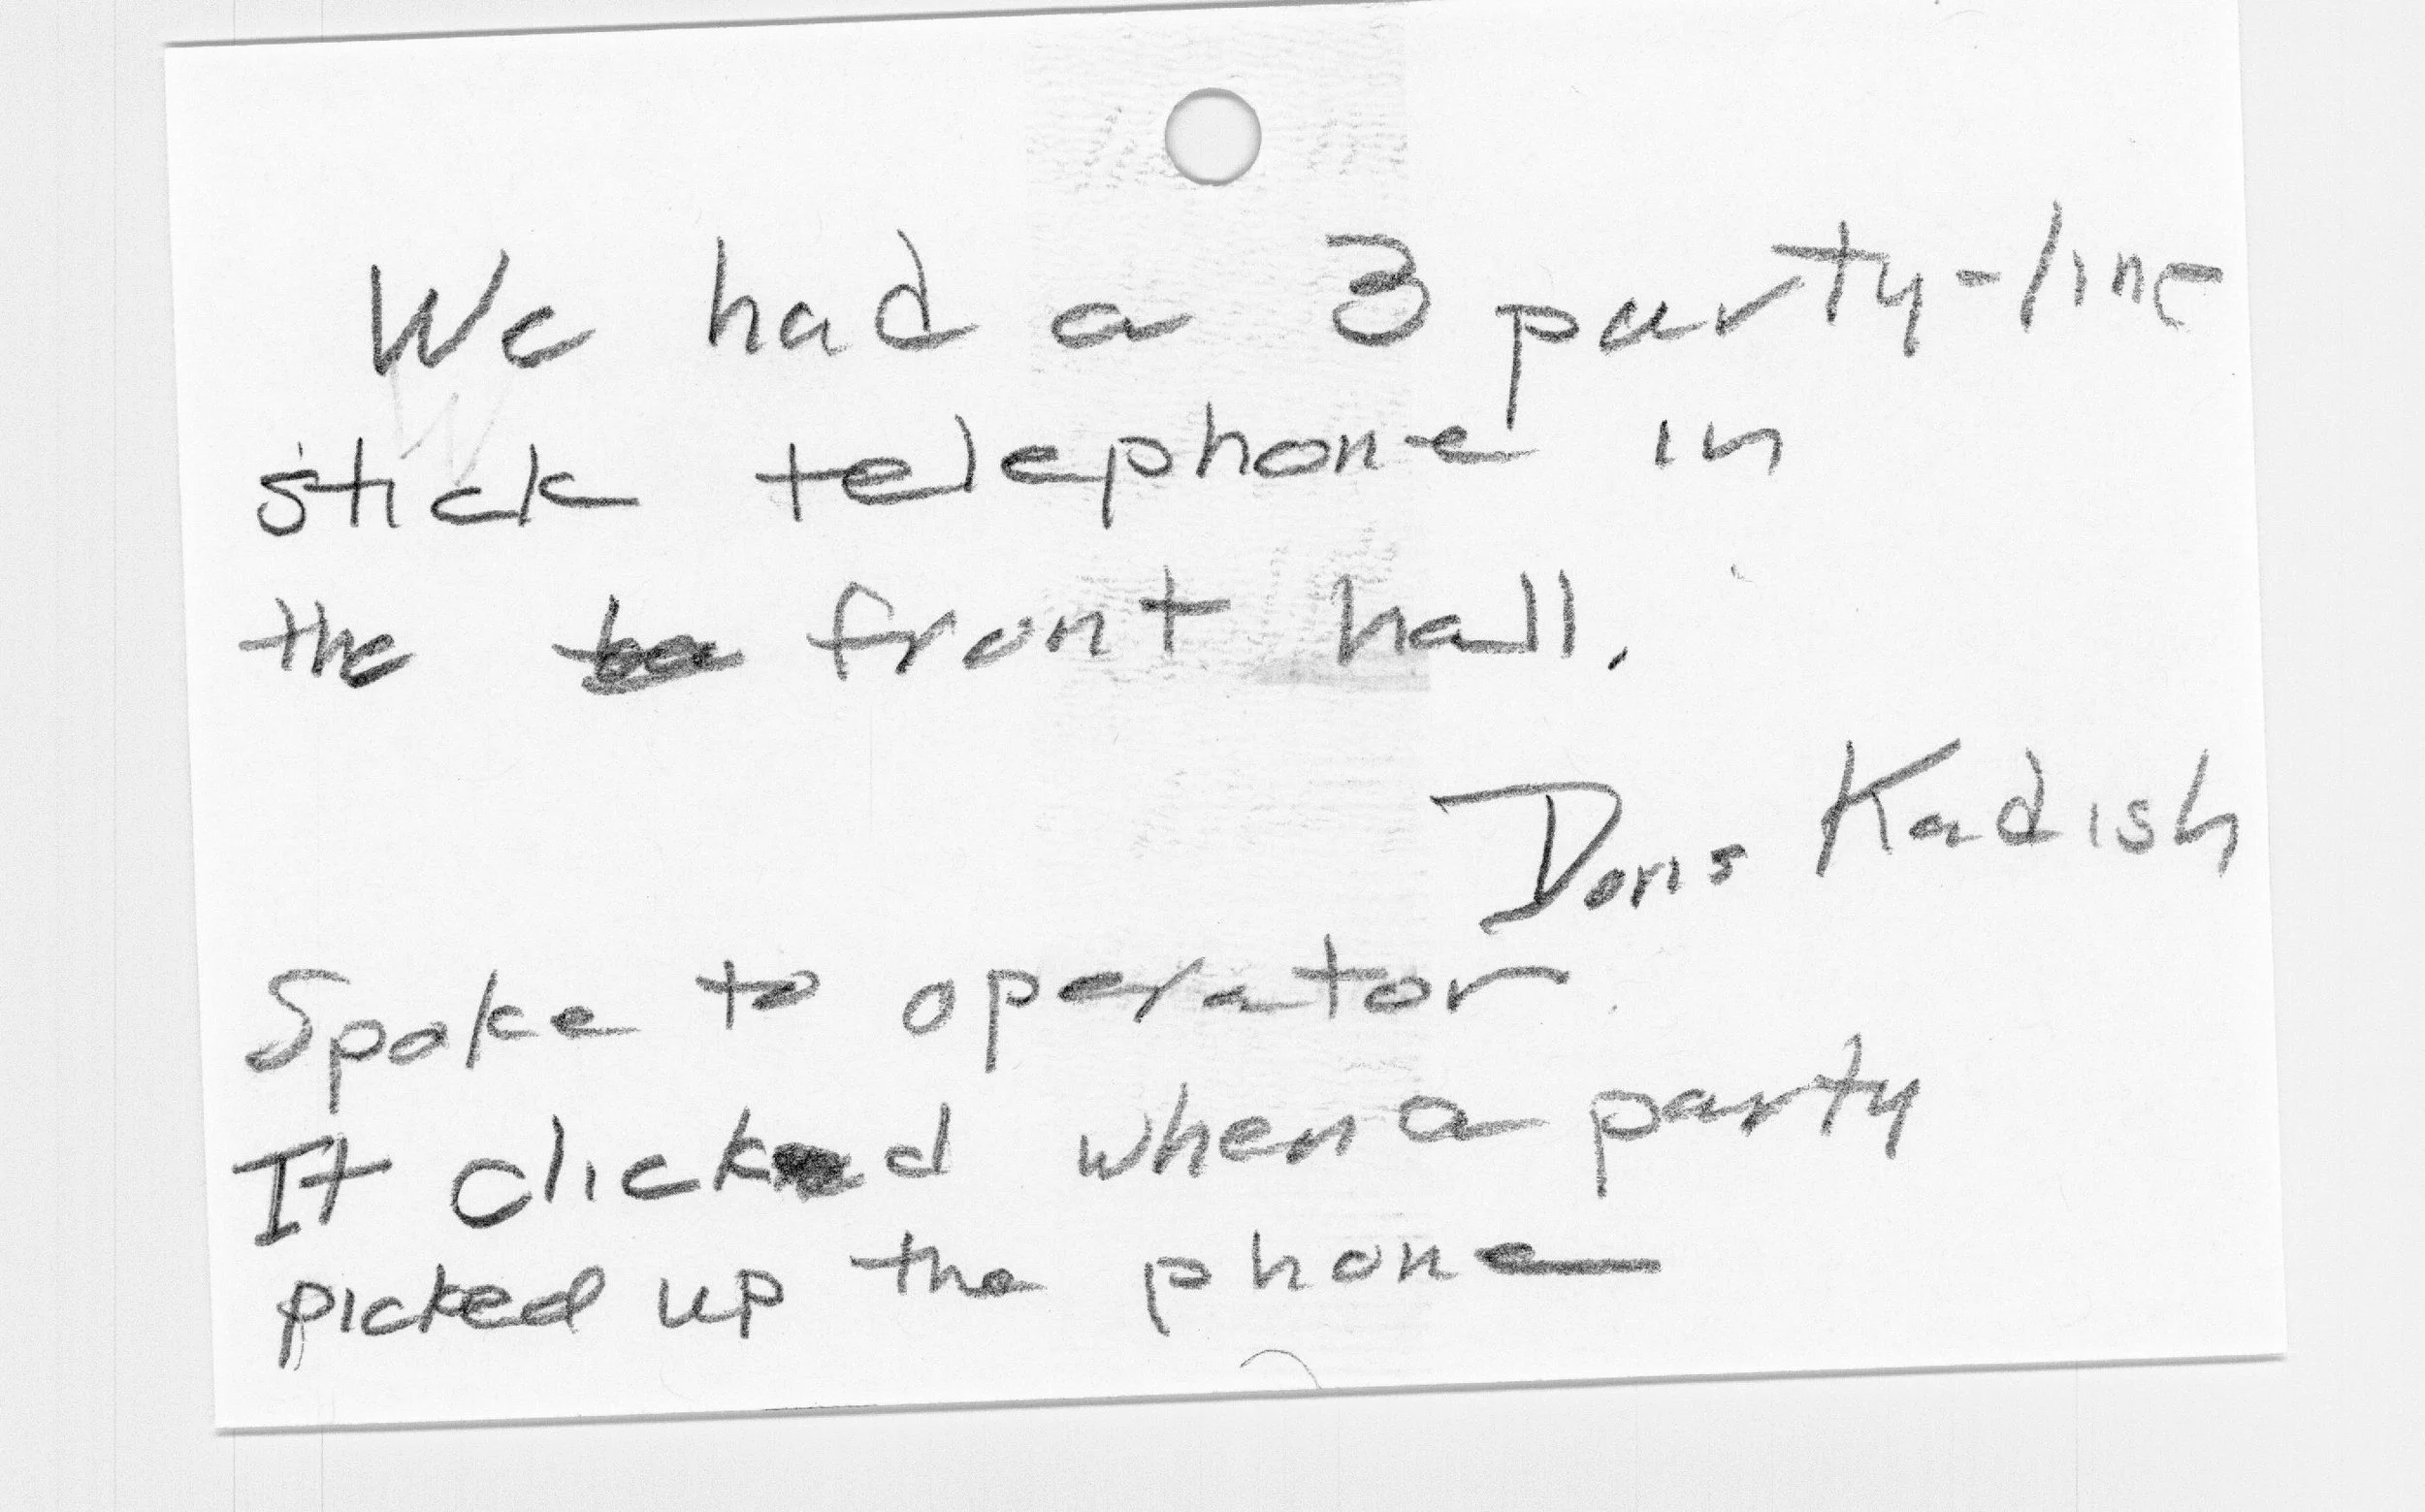 We had a 3 party-line
stick telephone in
the front hall.
Doris Kadish
Spoke to operator.
It clicked when a party
picked up the phone